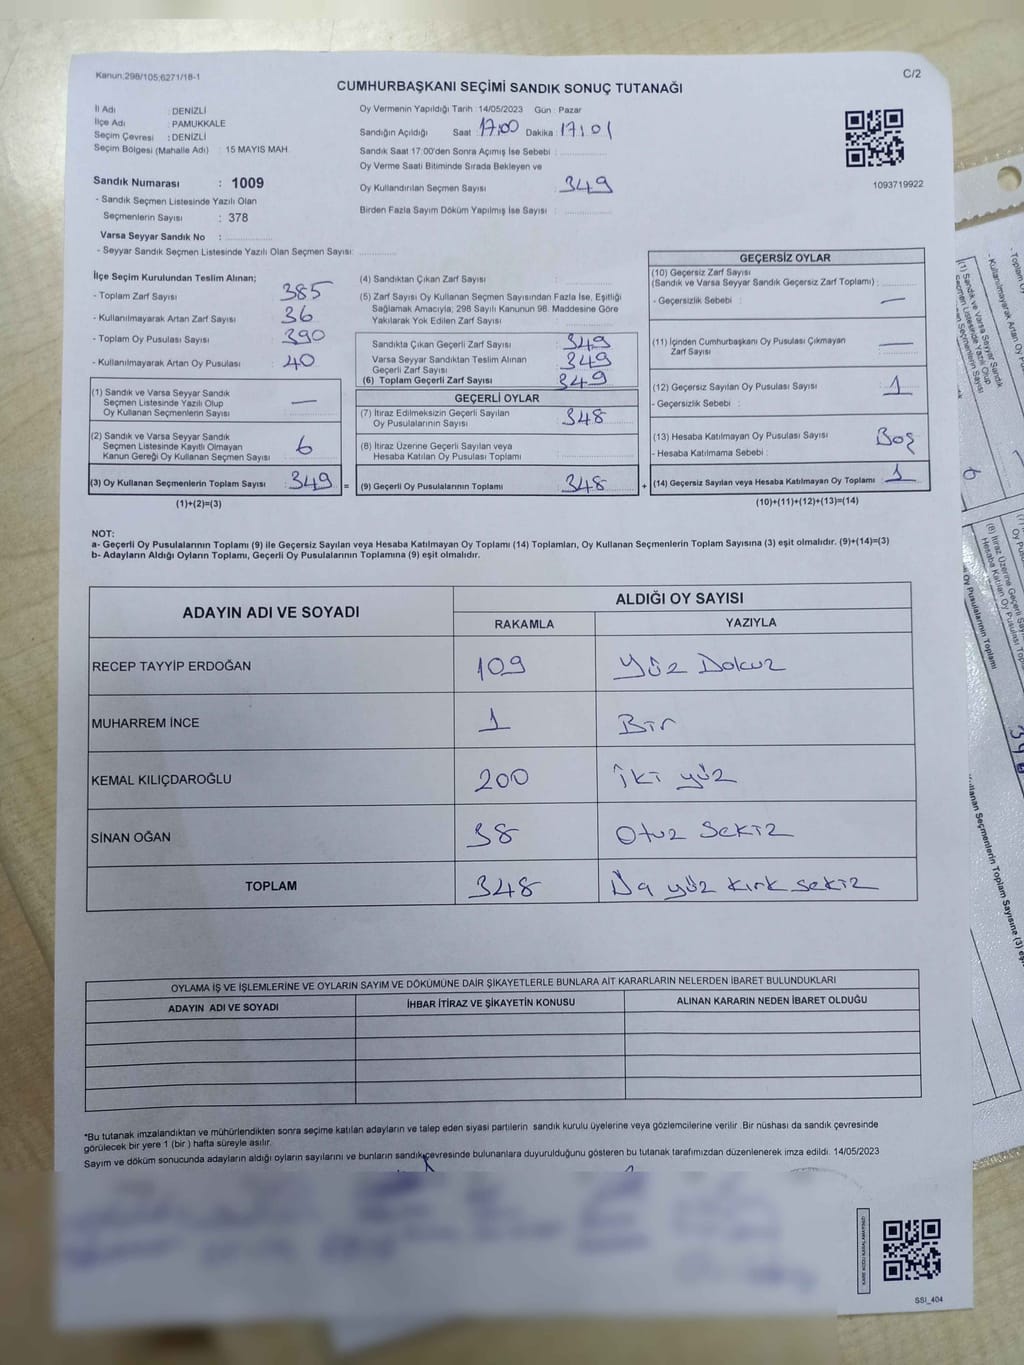 Kanun.298/105;6271/18-1
C/2
CUMHURBAŞKANI SEÇİMİ SANDIK SONUÇ TUTANAĞI
İl Adı : DENİZLİ
İlçe Adı : PAMUKKALE
Seçim Çevresi : DENİZLİ
Seçim Bölgesi (Mahalle Adı) : 15 MAYIS MAH.
Sandık Numarası : 1009
- Sandık Seçmen Listesinde Yazılı Olan
Seçmenlerin Sayısı : 378
Varsa Seyyar Sandık No :
- Seyyar Sandık Seçmen Listesinde Yazılı Olan Seçmen Sayısı:
Oy Vermenin Yapıldığı Tarih : 14/05/2023 Gün : Pazar
Sandığın Açıldığı Saat : 17:00 Dakika : 17:01
Sandık Saat 17:00'den Sonra Açımış İse Sebebi :
Oy Verme Saati Bitiminde Sırada Bekleyen ve
Oy Kullandırılan Seçmen Sayısı : 349
Birden Fazla Sayım Döküm Yapılmış İse Sayısı :
1093719922
İlçe Seçim Kurulundan Teslim Alınan;
- Toplam Zarf Sayısı 385
- Kullanılmayarak Artan Zarf Sayısı 36
- Toplam Oy Pusulası Sayısı 390
- Kullanılmayarak Artan Oy Pusulası 40
(1) Sandık ve Varsa Seyyar Sandık
Seçmen Listesinde Yazılı Olup
Oy Kullanan Seçmenlerin Sayısı —
(2) Sandık ve Varsa Seyyar Sandık
Seçmen Listesinde Kayıtlı Olmayan
Kanun Gereği Oy Kullanan Seçmen Sayısı 6
(3) Oy Kullanan Seçmenlerin Toplam Sayısı 349 =
(1)+(2)=(3)
(4) Sandıktan Çıkan Zarf Sayısı
(5) Zarf Sayısı Oy Kullanan Seçmen Sayısından Fazla İse, Eşitliği
Sağlamak Amacıyla, 298 Sayılı Kanunun 98. Maddesine Göre
Yakılarak Yok Edilen Zarf Sayısı
Sandıkta Çıkan Geçerli Zarf Sayısı 349
Varsa Seyyar Sandıktan Teslim Alınan
Geçerli Zarf Sayısı 349
(6) Toplam Geçerli Zarf Sayısı 349
GEÇERLİ OYLAR
(7) İtiraz Edilmeksizin Geçerli Sayılan
Oy Pusulalarının Sayısı 348
(8) İtiraz Üzerine Geçerli Sayılan veya
Hesaba Katılan Oy Pusulası Toplamı
(9) Geçerli Oy Pusulalarının Toplamı 348 +
GEÇERSİZ OYLAR
(10) Geçersiz Zarf Sayısı
(Sandık ve Varsa Seyyar Sandık Geçersiz Zarf Toplamı) :
- Geçersizlik Sebebi : —
(11) İçinden Cumhurbaşkanı Oy Pusulası Çıkmayan
Zarf Sayısı : —
(12) Geçersiz Sayılan Oy Pusulası Sayısı : 1
- Geçersizlik Sebebi :
(13) Hesaba Katılmayan Oy Pusulası Sayısı : Boş
- Hesaba Katılmama Sebebi :
(14) Geçersiz Sayılan veya Hesaba Katılmayan Oy Toplamı 1
(10)+(11)+(12)+(13)=(14)
NOT:
a- Geçerli Oy Pusulalarının Toplamı (9) ile Geçersiz Sayılan veya Hesaba Katılmayan Oy Toplamı (14) Toplamları, Oy Kullanan Seçmenlerin Toplam Sayısına (3) eşit olmalıdır. (9)+(14)=(3)
b- Adayların Aldığı Oyların Toplamı, Geçerli Oy Pusulalarının Toplamına (9) eşit olmalıdır.
ADAYIN ADI VE SOYADI ALDIĞI OY SAYISI
RAKAMLA YAZIYLA
RECEP TAYYİP ERDOĞAN 109 Yüz Dokuz
MUHARREM İNCE 1 Bir
KEMAL KILIÇDAROĞLU 200 İki yüz
SİNAN OĞAN 38 Otuz Sekiz
TOPLAM 348 yüz kırk sekiz
OYLAMA İŞ VE İŞLEMLERİNE VE OYLARIN SAYIM VE DÖKÜMÜNE DAİR ŞİKAYETLERLE BUNLARA AİT KARARLARIN NELERDEN İBARET BULUNDUKLARI
ADAYIN ADI VE SOYADI İHBAR İTİRAZ VE ŞİKAYETİN KONUSU ALINAN KARARIN NEDEN İBARET OLDUĞU
*Bu tutanak imzalandıktan ve mühürlendikten sonra seçime katılan adayların ve talep eden siyasi partilerin sandık kurulu üyelerine veya gözlemcilerine verilir. Bir nüshası da sandık çevresinde
görülecek bir yere 1 (bir ) hafta süreyle asılır.
Sayım ve döküm sonucunda adayların aldığı oyların sayılarını ve bunların sandık çevresinde bulunanlara duyurulduğunu gösteren bu tutanak tarafımızdan düzenlenerek imza edildi. 14/05/2023
SSI_404